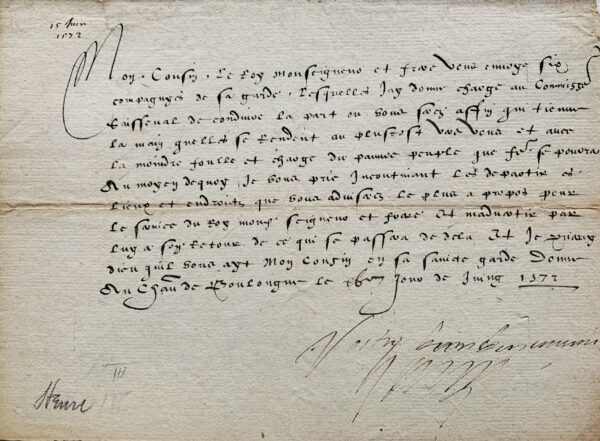 15 Juin
1572
Mon Cousin, Le Roy monseigneur et frere vous envoye six
compagnyes de sa garde, lesquelles Jay donné charge au Commissre
de conduire la part ou vous serez affin qui tienne
la main quelles se rendent au plustost vers vous et avec
la moindre foulle et charge du pauvre peuple que fre se pourra
Au moyen dequoy, Je vous prie incontinant les departir es
lieux et endroitz que vous adviserez le plus a propos pour
le service du Roy mond. seigneur et frere Et madvertir par
luy a son retour de ce qui se passera de dela Et Je prieray
dieu quil vous ayt Mon Cousin en sa saincte garde donné
Au Chau de Boulongne le jour de Juing 1572
Votre
III
Henri